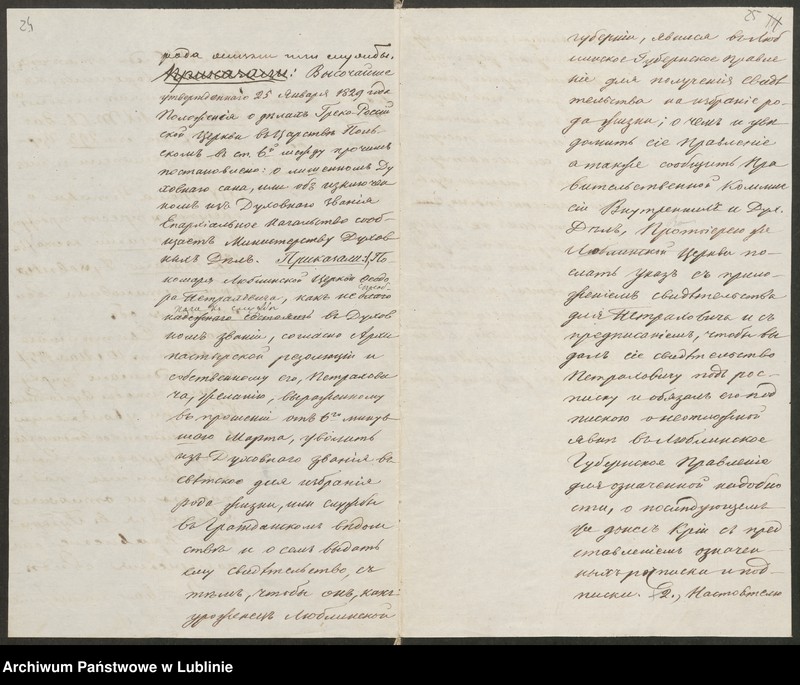 24
рода жизни или службы.
Приказали: Высочайше
утвержденнаго 25 Января 1829 года
Положенія о дѣлахъ Греко-Россій
ской Церкви въ Царствѣ Поль
скомъ въ ст. 6й между прочимъ
постановлено: о лишенномъ Ду
ховнаго сана, или объ исключен
номъ изъ Духовнаго званія
Епархіальное Начальство сооб
щаетъ Министерству Духов
ныхъ Дѣлъ. Приказали: 1, По
номаря Люблинской Церкви
ра Петраловича, какъ не
состоять въ Духов
номъ званіи, согласно Архи
пастырской резолюціи и
собственному его, Петралови
ча, желанію, выраженному
въ прошеніи отъ 6го минув
шаго Марта, уволить
изъ Духовнаго званія въ
свѣтское для избранія
рода жизни, или службы
въ Гражданскомъ вѣдом
ствѣ и о семъ выдать
ему свидѣтельство, съ
тѣмъ, чтобы онъ, какъ
уроженецъ Люблинской
25
губерніи, явился въ Люб
линское Губернское Правле
ніе для полученія свидѣ
тельства на избраніе ро-
да жизни; о чемъ и увѣ
домить сіе Правленіе
а также сообщить Пра
вительственной Коммис
сіи Внутреннихъ и Дух.
Дѣлъ, Протоіерею же
Люблинской Церкви по-
слать указъ съ прило-
женіемъ свидѣтельства
для Петраловича и съ
предписаніемъ, чтобы вы
далъ сіе свидѣтельство
Петраловичу подъ рос-
писку и обязалъ его под
пискою о неотложной
явкѣ въ Люблинское
Губернское Правленіе
для означенной надобно
сти, о послѣдующемъ
же донесъ съ пред
ставленіемъ означен-
ныхъ росписки и под-
писки. 2., Настоятелю
Archiwum Państwowe w Lublinie